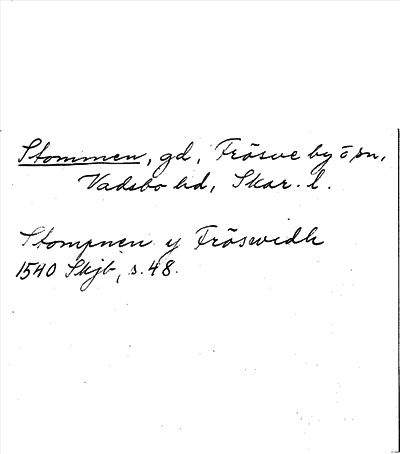 Stommen, gd, Frösve by o sn,
Vadsbo hd, Skar. l.
Stompnen y Fröswidh
1540 Skjb, s. 48.